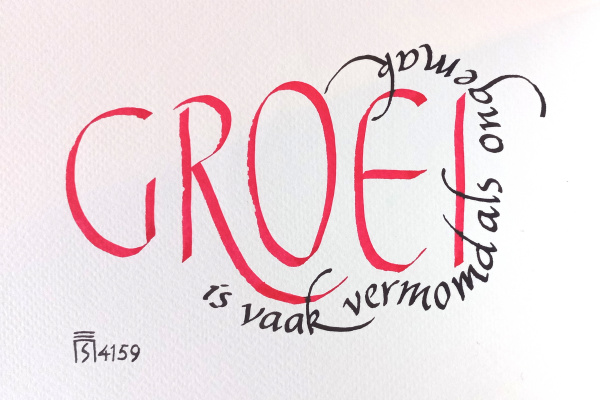 GROEI
is vaak vermomd als ongemak
4159